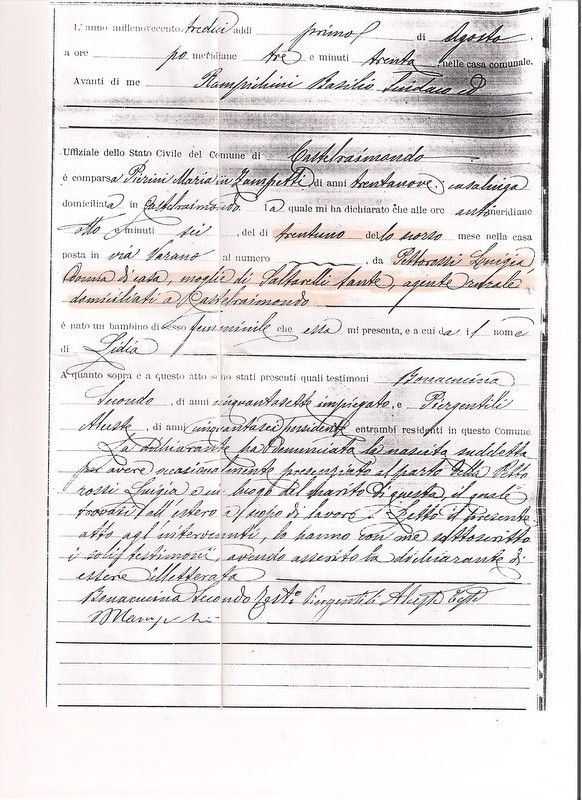 L'anno millenovecento tredici addì primo di Agosto
a ore po meridiane tre e minuti trenta, nelle casa comunale.
Avanti di me Rampichini Basilio Sindaco ed
Uffiziale dello Stato Civile del Comune di Castelraimondo
è comparsa Pierini Maria in Zampetti di anni trentanove casalinga
domiciliata in Castelraimondo la quale mi ha dichiarato che alle ore antimeridiane
otto e minuti sei, del dì trentuno dello scorso mese nella casa
posta in via Varano al numero , da Pettorossi Luigia
donna di casa, moglie di Sante, agente rurale
domiciliati a Castelraimondo
è nato un bambino di sesso femminile che essa mi presenta, e a cui da il nome
di Lidia
A quanto sopra e a questo atto sono stati presenti quali testimoni Bonacucina
Secondo, di anni cinquantasette impiegato, e Piergentili
Alceste, di anni cinquantasei possidente entrambi residenti in questo Comune
La dichiarante ha denunciata la nascita suddetta
per avere occasionalmente presenziato il parto della Petto
rossi Luigia e in luogo del marito di questa, il quale
trovasi all'estero a scopo di lavoro. Letto il presente
atto agl'intervenuti, lo hanno con me sottoscritto
i soli testimoni, avendo asserito la dichiarante di
essere illetterata
Bonacucina Secondo Teste Piergentili Alceste Teste